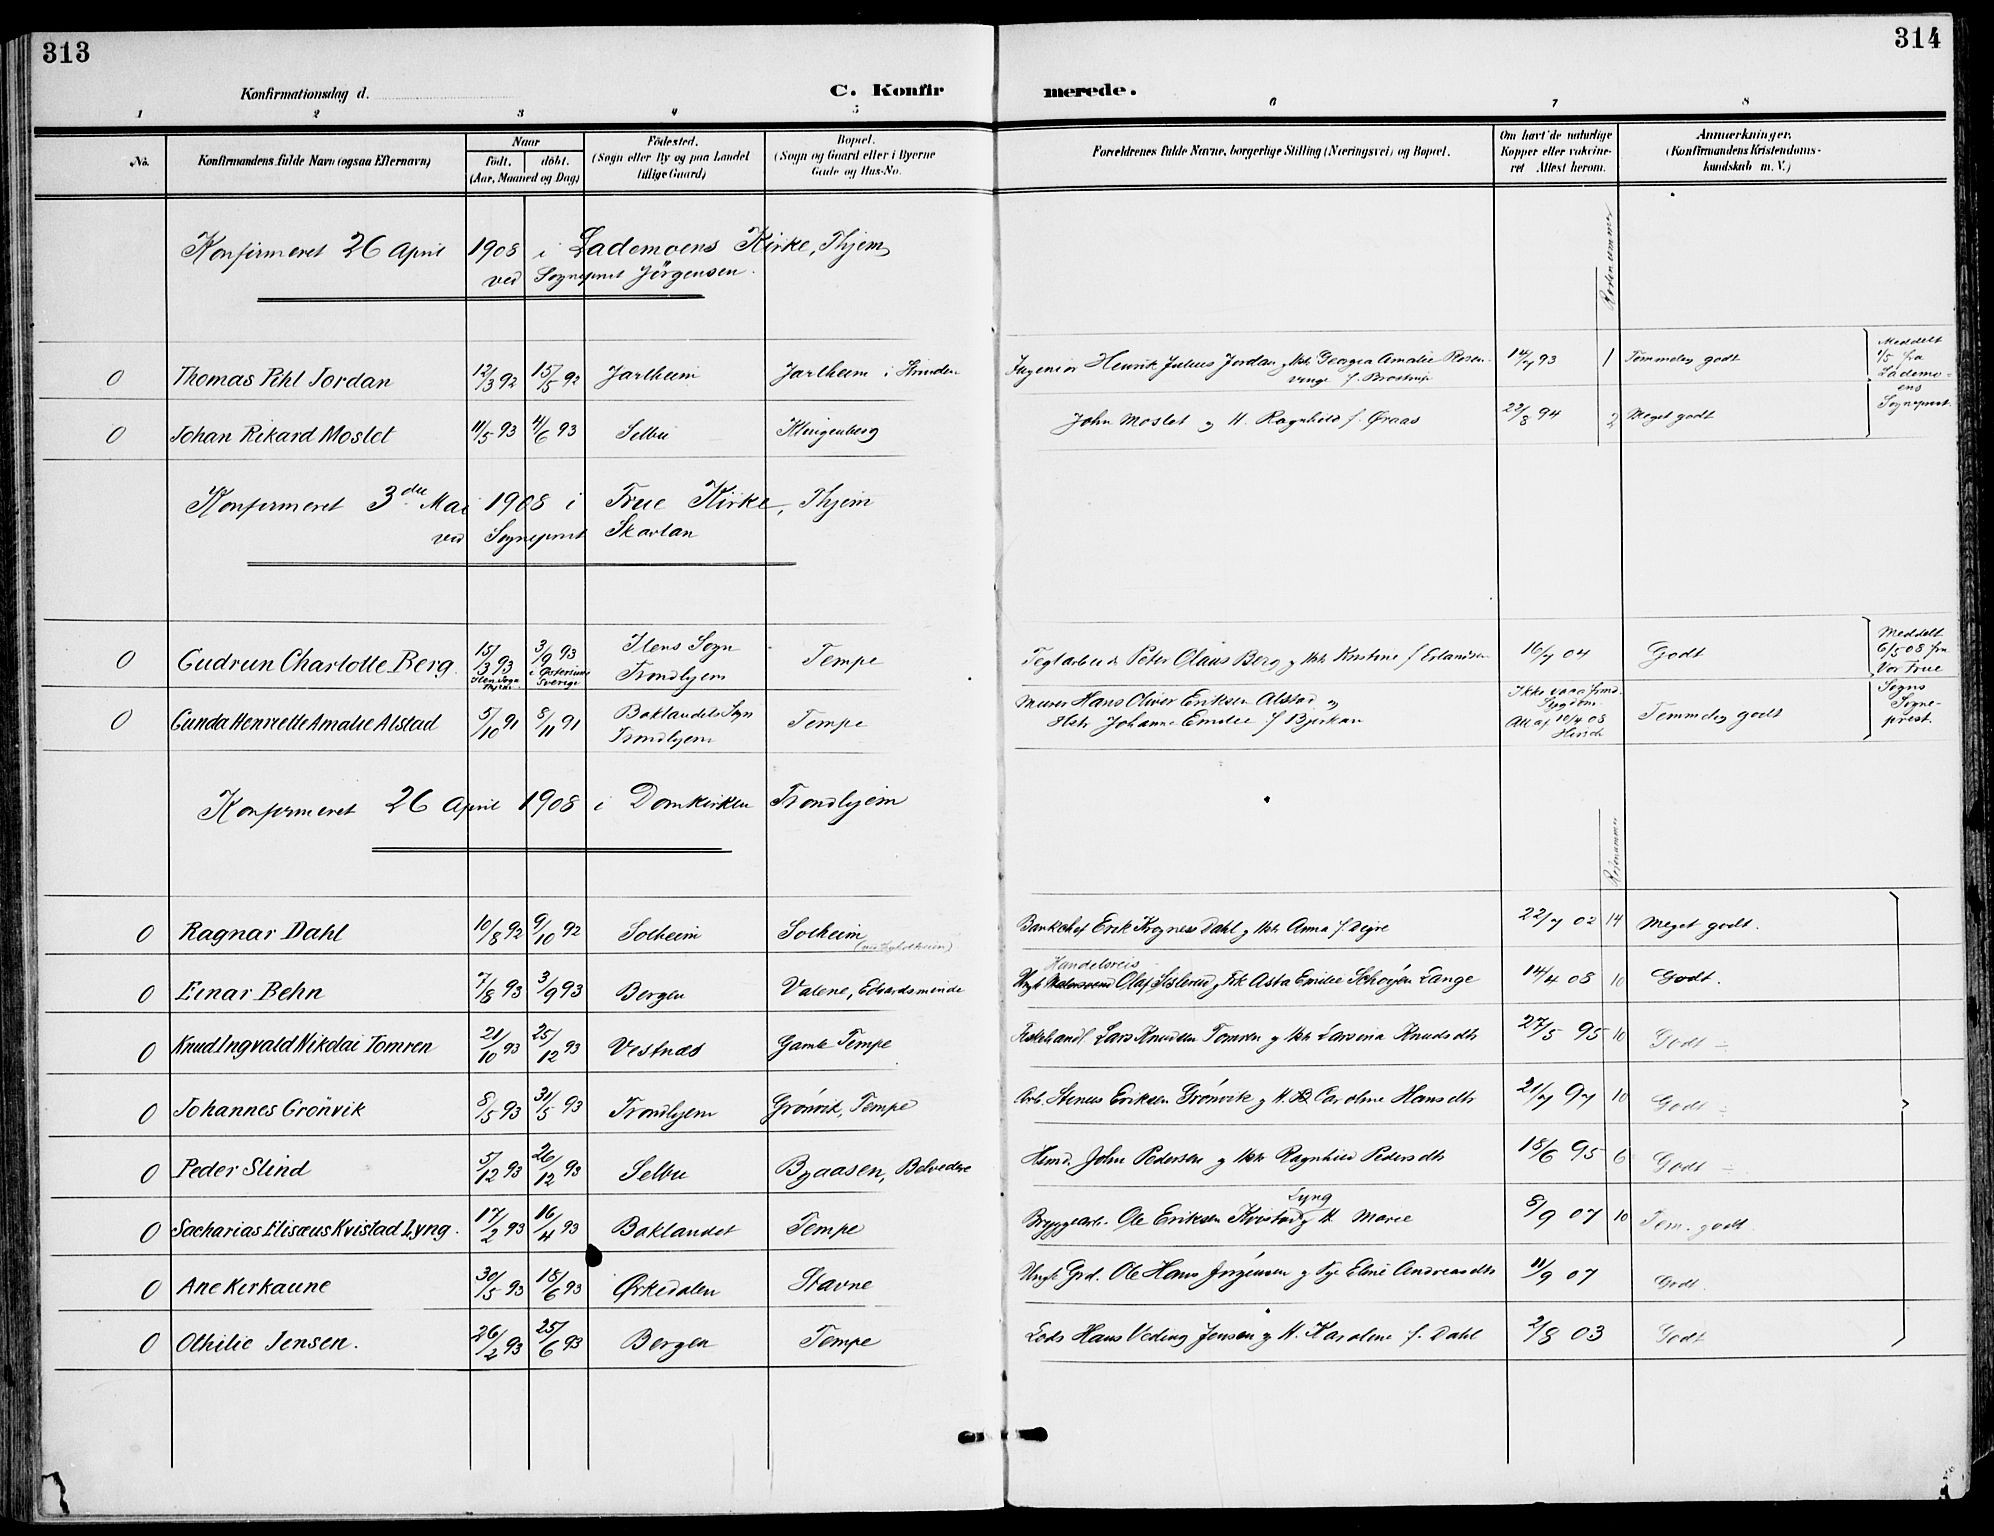 313
314
Konfirmationsdag d.
C. Konfir
merede.
1 2 3 4 5 6 7 8
No.
Konfirmandens fulde Navn (ogsaa Efternavn)
Naar
født. døbt.
(Aar, Maaned og Dag)
Fødested.
(Sogn eller By og paa Landet
tillige Gaard)
Bopæl.
(Sogn og Gaard eller i Byerne
Gade og Hus-No.
Forældrenes fulde Navne, borgerlige Stilling (Næringsvei) og Bopæl.
Om havt de naturlige
Kopper eller vakcine-
ret Attest herom.
Anmærkninger.
(Konfirmandens Kristendoms-
kundskab m. V.)
Konfirmeret 26 April 1908 i Lademoens Kirke, Thjem
ved Sogneprest Jörgensen.
0 Thomas Pihl Jordan 12/3 92 15/5 92 Jarlheim Jarlheim i Strinden Ingeniør Henrik Julius Jordan og Hstr Georgia Amalie Rosen- 14/7 93 1 Temmelig godt Meddelt
vinge f. Brostrup
1/5 fra
Lademo-
ens
Sogneprest.
0 Johan Rikard Moslet 11/5 93 4/6 93 Selbu Klingenberg John Moslet og H. Ragnhild f. Øraas 22/8 94 2 Meget godt
Konfirmeret 3die Mai 1908 i Frue Kirke, Thjem
ved Sogneprest Skartan
0 Gudrun Charlotte Berg 15/3 93 3/9 93 Ilens Sogn Tempe Teglarbeid. Peter Olaus Berg og Hstr Kristine f Erlandsen 16/7 04 Godt Meddelt
Ilens Sogn
i Østersund
Sverige
Trondhjem
6/5 08 fra
Vor Frue
Sogns
Sogne-
prest.
0 Gunda Henriette Amalie Alstad 5/10 91 8/11 91 Baklandets Sogn Tempe Murer Hans Oliver Eriksen Alstad og
Trondhjem
Hstr Johanne Emilie f Bjerkan
Sygdom
Att af 10/4 08
Hirsch
Temmelig godt
Konfirmeret 26 April 1908 i Domkirken Trondhjem
0 Ragnar Dahl 10/8 92 9/10 92 Solheim Solheim Bankchef Erik Krognes Dahl og Hstr Anna f. Digre 22/7 02 14 Meget godt.
0 Einar Behn 7/8 93 3/9 93 Bergen Valene, Edvardsminde
Handelsreis
Olaf Sislerud og Frk Asta Emilie Schøyen Lange 14/4 08 10 Godt.
0 Knud Ingvald Nikolai Tomren 21/10 93 25/12 93 Vestnæs Gamle Tempe Fiskehandl Lars Knudsen Tomren og Hstr Larsina Knudsdtr 27/5 95 10 Godt
0 Johannes Grönvik 8/5 93 31/5 93 Trondhjem Grønvik, Tempe Arb. Stenus Eriksen Grønvik og H. Caroline Hansdtr 21/7 97 10 Godt
0 Peder Slind 5/12 93 26/12 93 Selbu Byaasen, Belvedere Hsmd. John Pedersen og Hstr Ragnhild Pedersdtr 18/6 95 6 Godt
0 Sacharias Elisæus Kvistad Lyng. 17/2 93 16/4 93 Baklandet Tempe Bryggearb. Ole Eriksen Kvistad Lyng og H. Marie 8/9 07 10 Tem. godt
0 Ane Kirkaune 30/5 93 18/6 93 Ørkedalen Stavne Ungk Grd. Ole Hans Jørgensen og Pige Eline Andreasdtr 11/9 07 Godt
0 Othilie Jensen. 26/2 93 25/6 93 Bergen Tempe Lods Hans Veding Jensen og H. Karoline f. Dahl 2/8 03 Godt